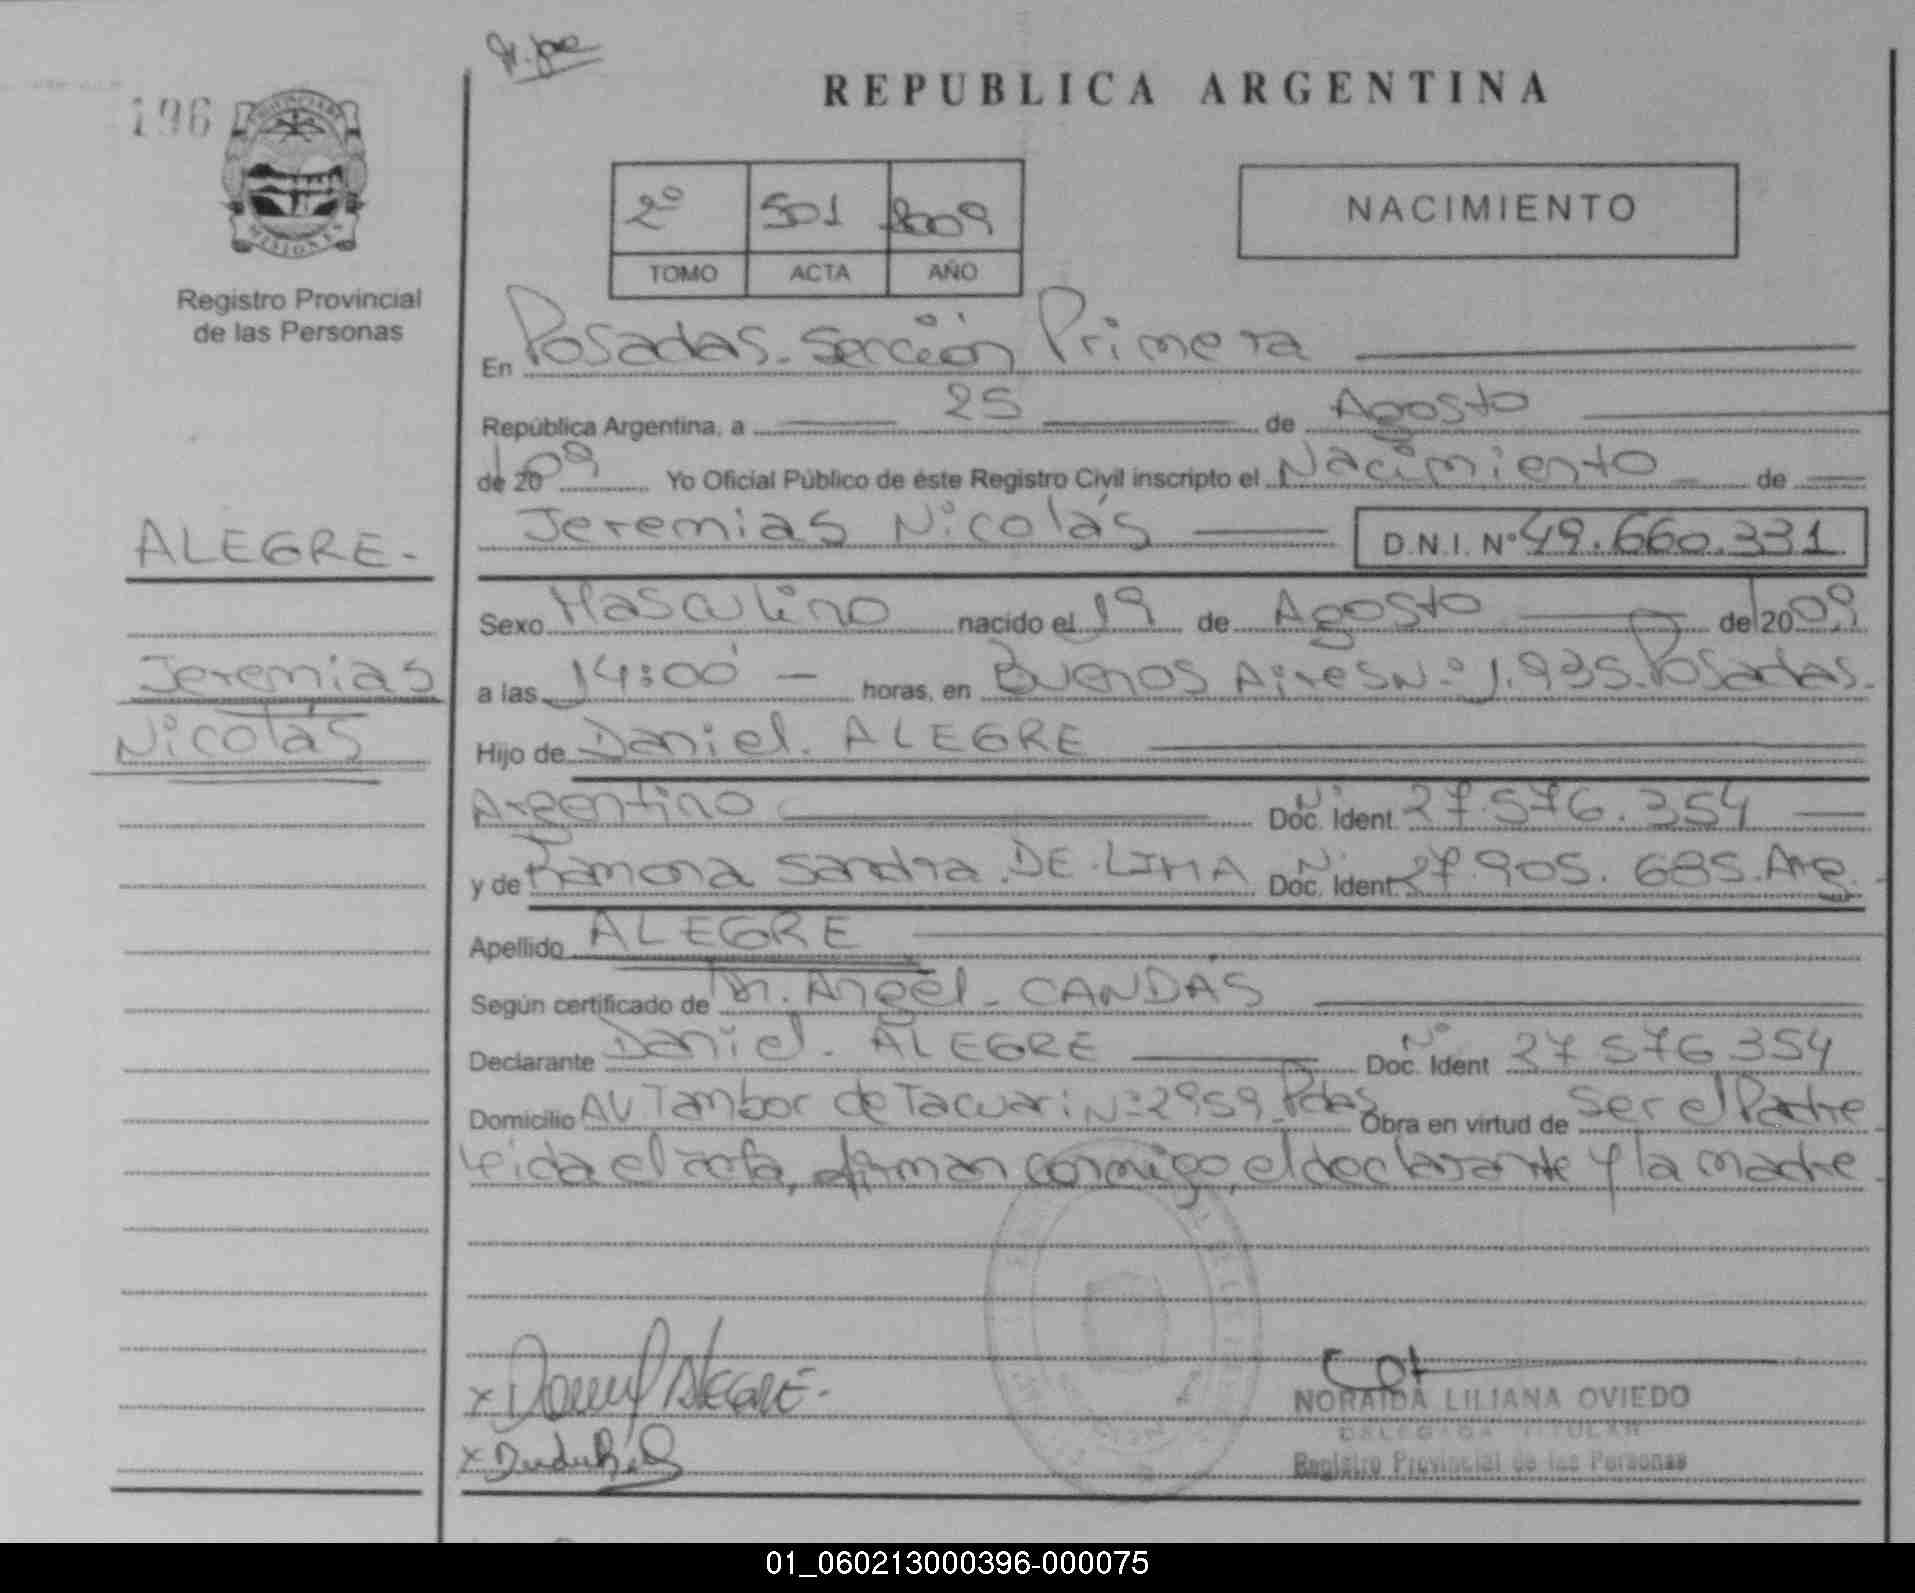 196
REPUBLICA ARGENTINA
2º 501 2009
TOMO ACTA AÑO
NACIMIENTO
MISIONES
Registro Provincial
de las Personas
En Posadas. Sección Primera
República Argentina, a 25 de Agosto
de 2009 Yo Oficial Público de éste Registro Civil inscripto el Nacimiento de
Jeremias Nicolás D.N.I. Nº 49.660.331
ALEGRE.
Jeremias
Nicolás
Sexo Masculino nacido el 19 de Agosto de 2009
a las 14:00 horas, en Buenos Aires Nº 1.935. Posadas.
Hijo de Daniel. ALEGRE
Argentino Doc. Ident. Nº 27.576.354
y de Ramona Sandra. DE LIMA Doc. Ident. Nº 27.905.685. Arg.
Apellido ALEGRE
Según certificado de Dr. Angel. CANDÁS
Declarante Daniel. ALEGRE Doc. Ident Nº 27576354
Domicilio AV Tambor de Tacuari Nº 2959 Pdas Obra en virtud de Ser el Padre
Leida el acta, firman conmigo, el declarante y la madre.
x Daniel ALEGRE.
x
NORAIDA LILIANA OVIEDO
DELEGADA TITULAR
Registro Provincial de las Personas
01_060213000396-000075